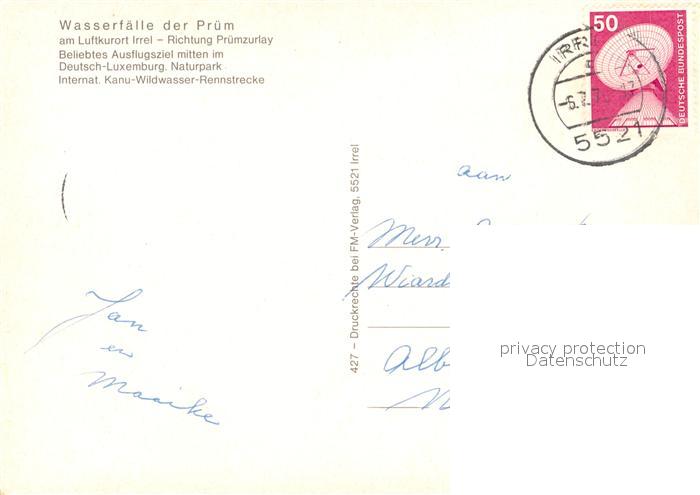 Wasserfälle der Prüm
am Luftkurort Irrel – Richtung Prümzurlay
Beliebtes Ausflugsziel mitten im
Deutsch-Luxemburg. Naturpark
Internat. Kanu-Wildwasser-Rennstrecke
50
DEUTSCHE BUNDESPOST
5521
427 – Druckrechte bei FM-Verlag, 5521 Irrel
aan
Jan
en
Maaike
privacy protection
Datenschutz